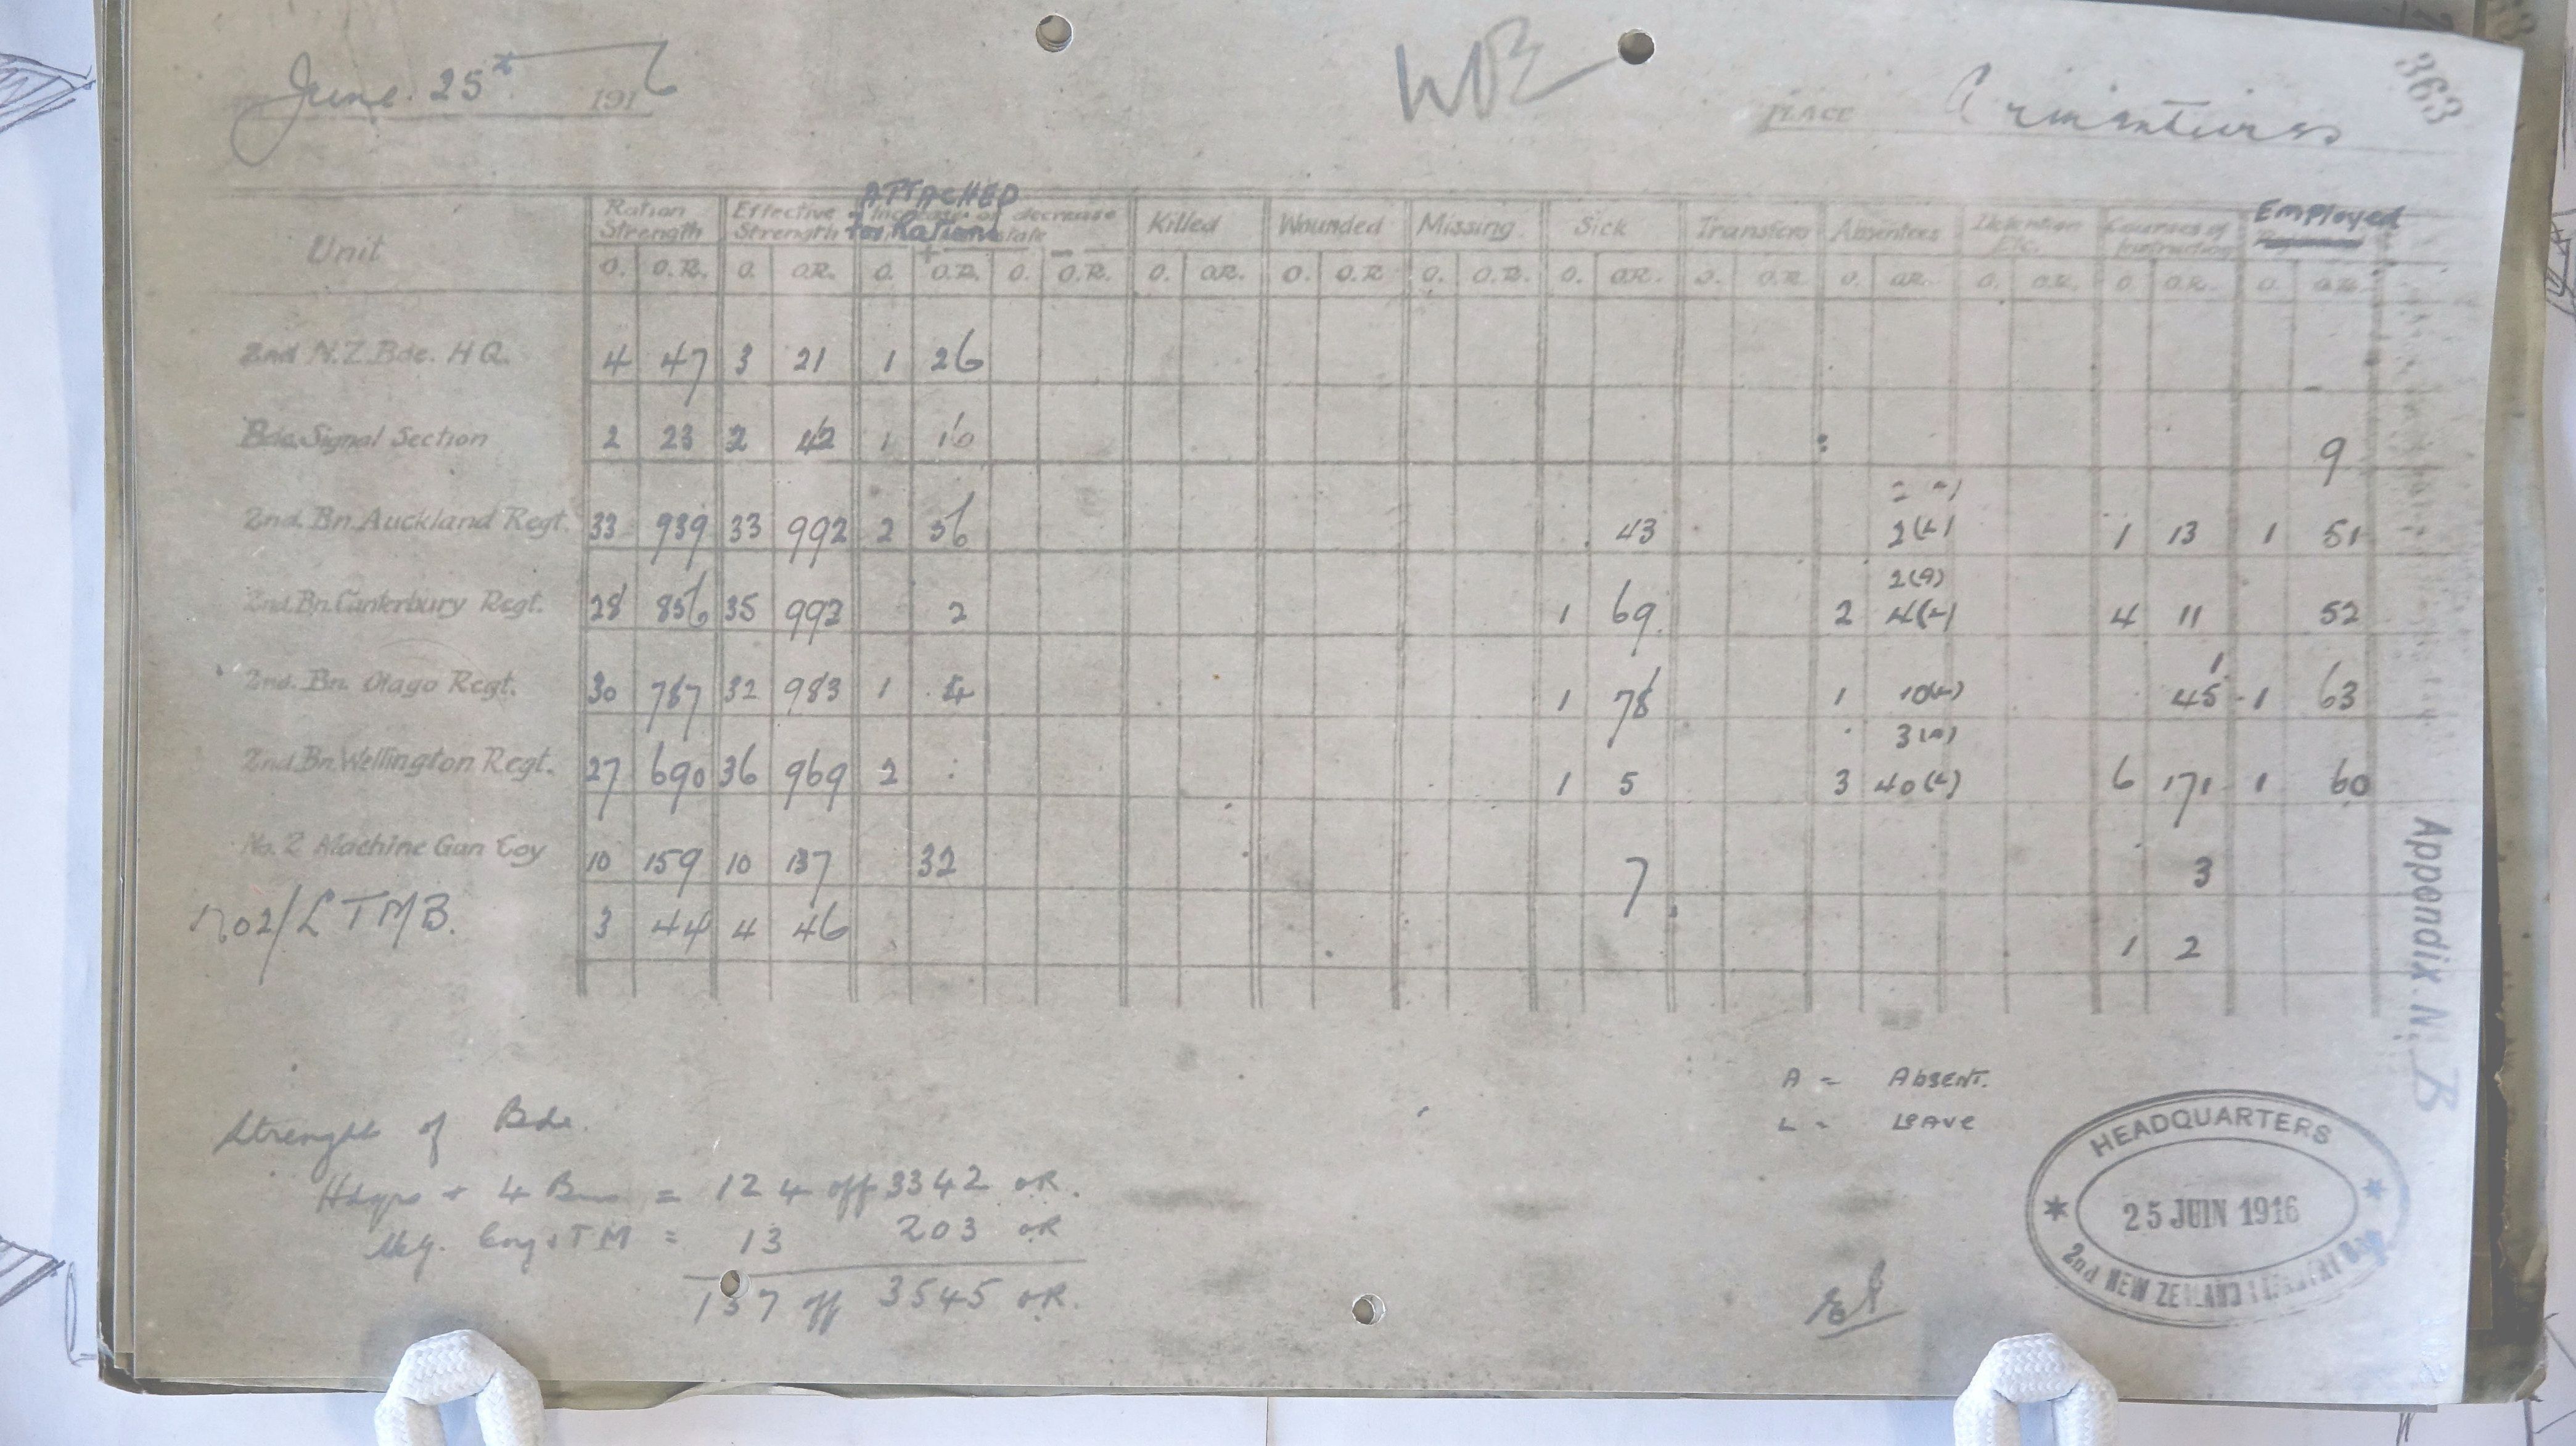 June. 25th 1916 WD2 PLACE Armentieres 363
Unit Ration Strength Effective Strength ATTACHED for Rations Increase or decrease state + − Killed Wounded Missing Sick Transfers Absentees Detention Etc. Courses of Instruction Employed
O. O.R. O. O.R. O. O.R. O. O.R. O. O.R. O. O.R O. O.R. O. O.R. O. O.R. O. O.R. O. O.R. O. O.R. O. O.R.
2nd N.Z. Bde. H Q. 4 47 3 21 1 26
Bde. Signal Section 2 23 2 42 1 10 9
2nd. Bn. Auckland Regt. 33 939 33 992 2 56 43 2(L) 1 13 1 51
2(A)
2nd. Bn. Canterbury Regt. 28 856 35 993 2 1 69 2 4(L) 4 11 52
1
2nd. Bn. Otago Regt. 30 787 32 983 1 4 1 78 1 10(L) 45 1 63
3(A)
2nd. Bn. Wellington Regt. 27 690 36 969 2 1 5 3 40(L) 6 171 1 60
No. 2 Machine Gun Coy 10 159 10 137 32 7 3
No2/L T M B. 3 44 4 46 1 2
Appendix N. B
A = Absent.
L = Leave
Strength of Bde.
Hdqrs + 4 Bns = 124 off 3342 OR.
M.g. Coy + TM = 13 203 OR
137 off 3545 OR.
HEADQUARTERS
25 JUIN 1916
2nd NEW ZEALAND INFANTRY BDE